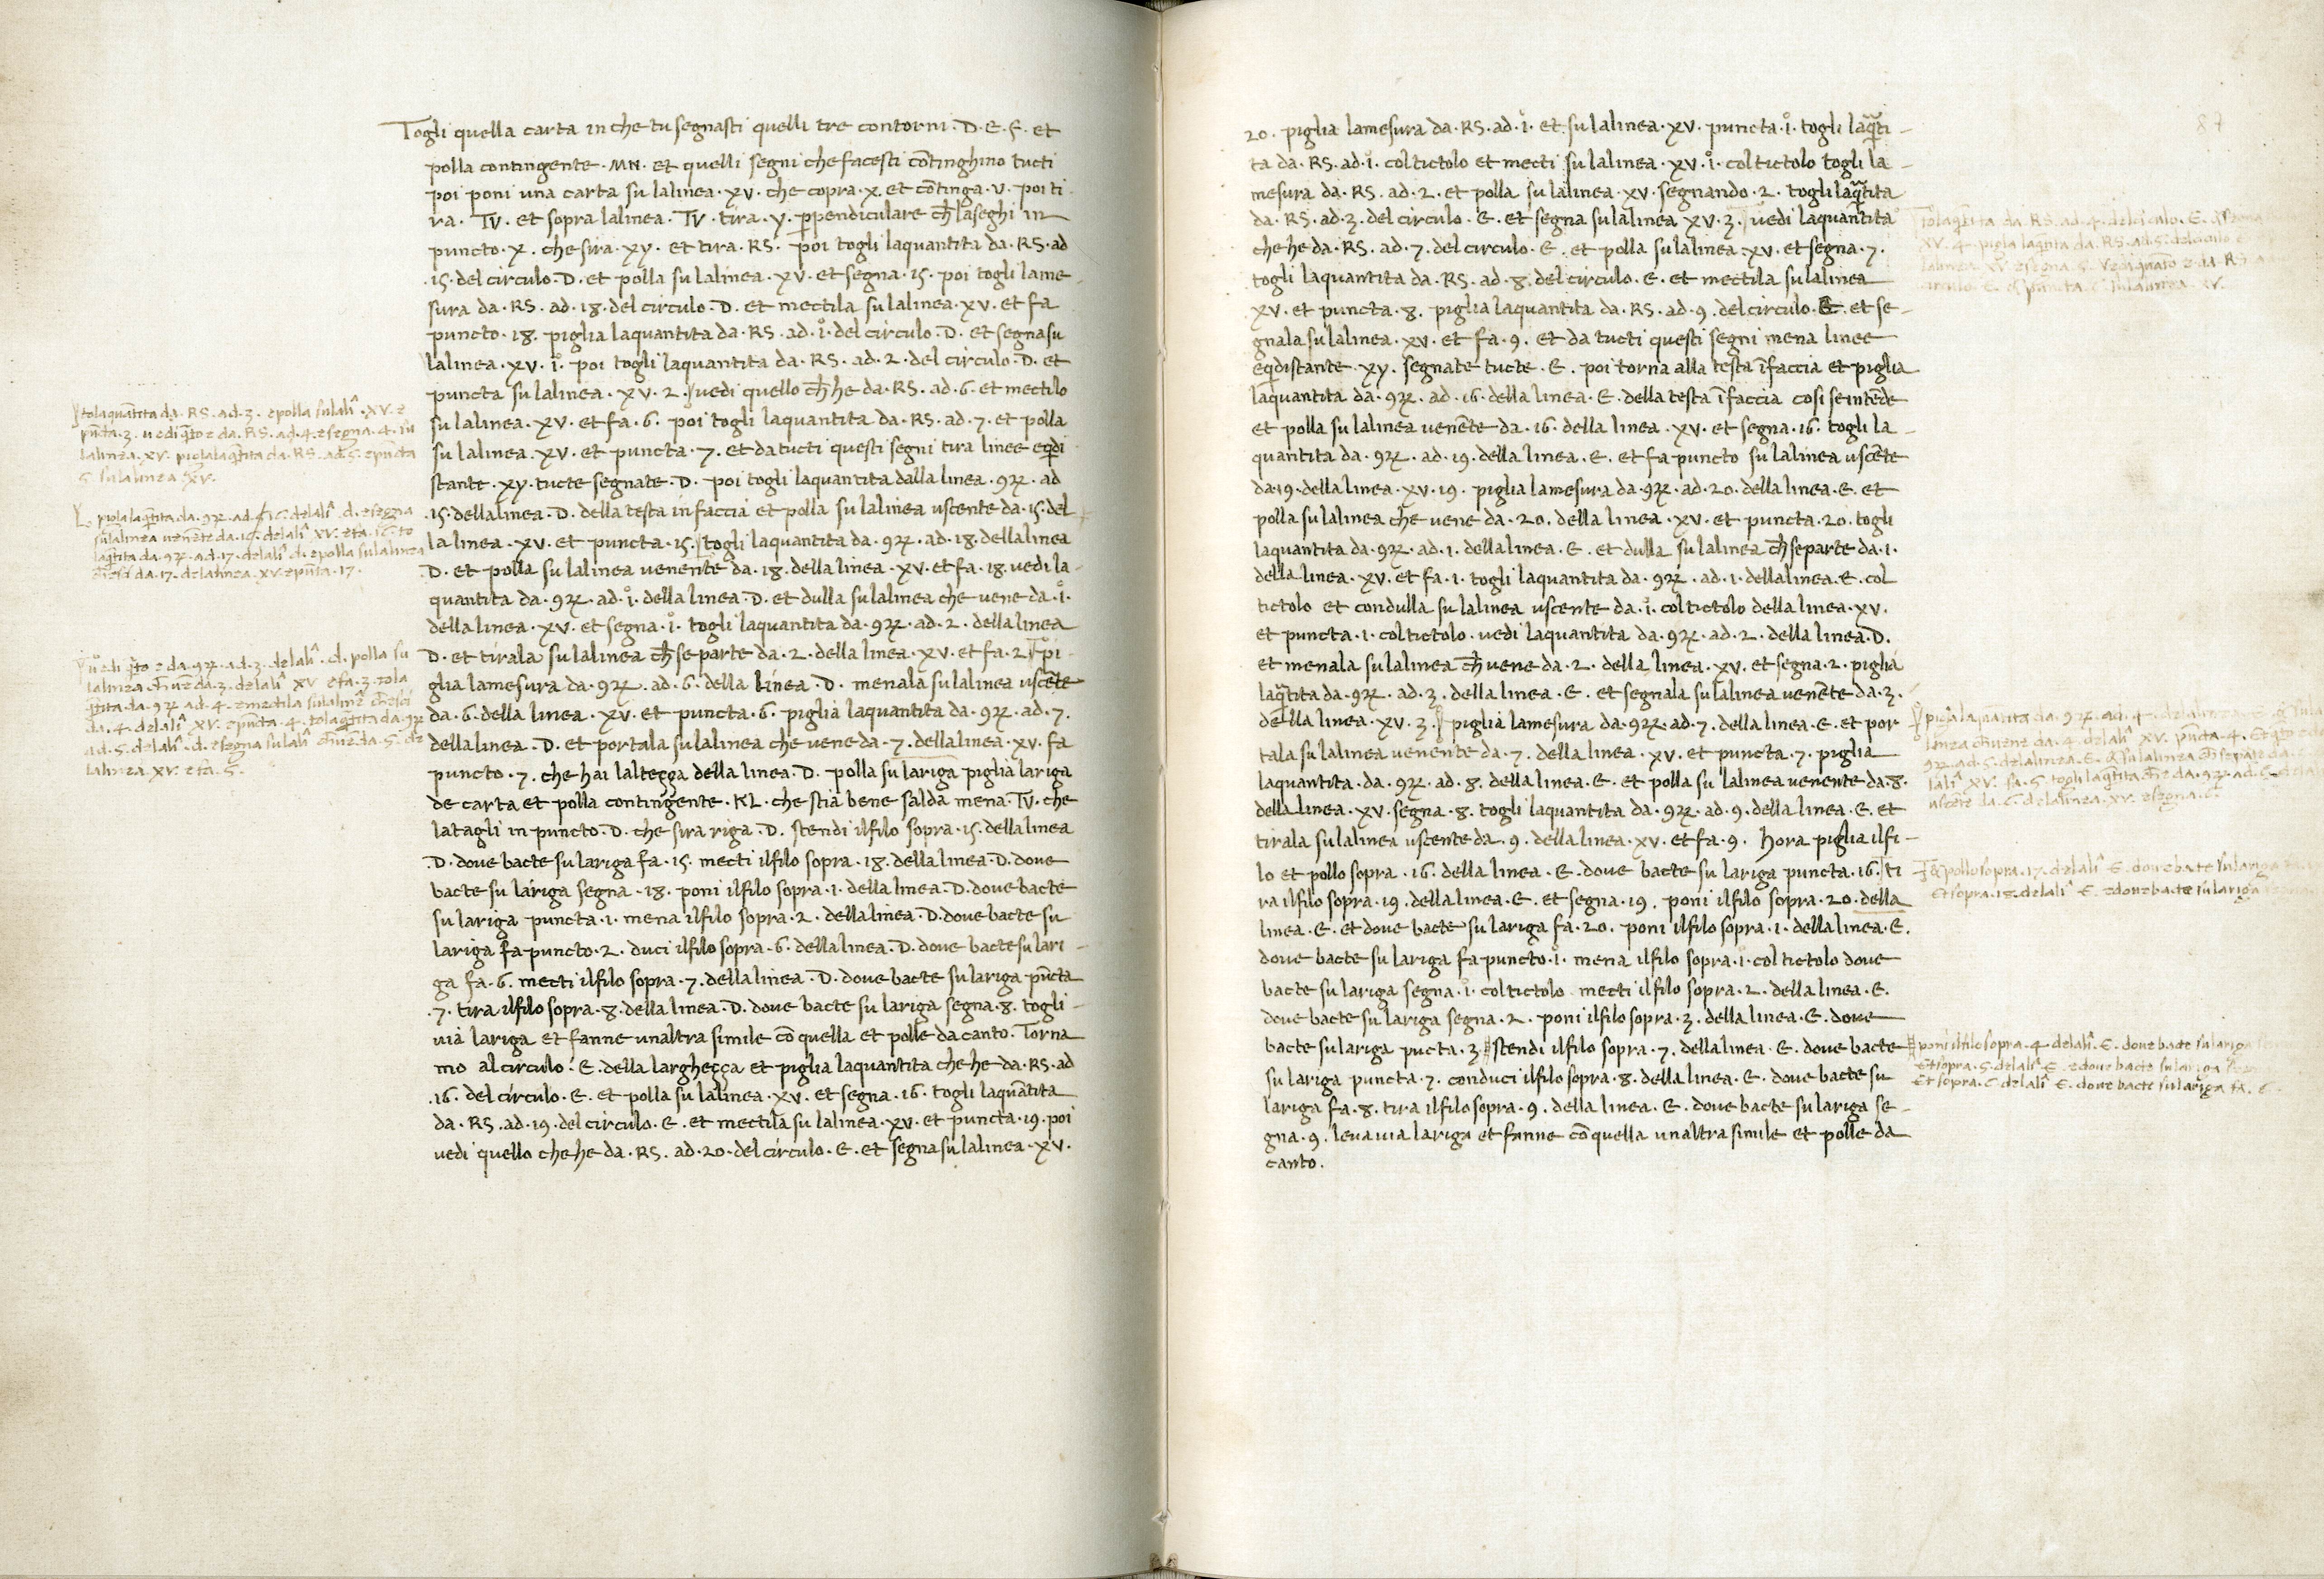 Togli quella carta in che tu segnasti quelli tre contorni · D · E · F · et
polla contingente · MN · et quelli segni che facesti cōtinghino tucti
poi poni una carta su lalinea · XV · che copra · X · et cōtinga · V · poi ti
ra · TV · et sopra lalinea · TV · tira · Y · ꝑpendiculare ch̄ laseghi in
puncto · X · che sira · XY · et tira · RS · poi togli laquantita da · RS · ad
· 15 · del circulo · D · et polla su lalinea · XV · et segna · 15 · poi togli lame
sura da · RS · ad · 18 · del circulo · D · et mectila su lalinea · XV · et fa
puncto · 18 · piglia laquantita da · RS · ad · i̊ · del circulo · D · et segna su
lalinea · XV · i̊ · poi togli laquantita da · RS · ad · 2 · del circulo · D · et
puncta su lalinea · XV · 2 · vedi quello ch̄ he da · RS · ad · 6 · et mectilo
su lalinea · XV · et fa · 6 · poi togli laquantita da · RS · ad · 7 · et polla
su lalinea · XV · et puncta · 7 · et da tucti questi segni tira linee eq̄di
stante · XY · tucte segnate · D · poi togli laquantita dalla linea · 9ꝝ · ad
· 15 · dellalinea · D · della testa in faccia et polla su lalinea uscente da · 15 · del
la linea · XV · et puncta · 15 · togli laquantita da · 9ꝝ · ad · 18 · dellalinea
· D · et polla su lalinea venente da · 18 · della linea · XV · et fa · 18 · vedi la -
quantita da · 9ꝝ · ad · i̊ · della linea · D · et dulla su lalinea che vene da · i̊ ·
della linea · XV · et segna · i̊ · togli laquantita da · 9ꝝ · ad · 2 · della linea
D · et tirala su lalinea ch̄ se parte da · 2 · della linea · XV · et fa · 2 · pi -
glia lamesura da · 9ꝝ · ad · 6 · della linea · D · menala su lalinea uscēte
da · 6 · della linea · XV · et puncta · 6 · piglia laquantita da · 9ꝝ · ad · 7 ·
dellalinea · D · et portala su lalinea che vene da · 7 · dellalinea · XV · fa
puncto · 7 · che hai lalteçça della linea · D · polla su lariga piglia lariga
de carta et polla contingente · KL · che stia bene salda mena · TV · che
latagli in puncto · D · che sira riga · D · stendi ilfilo sopra · 15 · della linea
· D · dove bacte su lariga fa · 15 · mecti ilfilo sopra · 18 · della linea · D · dove
bacte su lariga segna · 18 · poni ilfilo sopra · 1 · della linea · D · dove bacte
su lariga puncta · 1 · mena ilfilo sopra · 2 · della linea · D · dove bacte su
lariga fa puncto · 2 · duci ilfilo sopra · 6 · della linea · D · dove bacte su lari -
ga fa · 6 · mecti ilfilo sopra · 7 · della linea · D · dove bacte su lariga pūcta
· 7 · tira ilfilo sopra · 8 · della linea · D · dove bacte su lariga segna · 8 · togli -
via lariga et fanne unaltra simile cō quella et polle da canto · Torna
mo al circulo · E · della largheçça et piglia laquantita che he da · RS · ad
· 16 · del circulo · E · et polla su lalinea · XV · et segna · 16 · togli laquātita
da · RS · ad · 19 · del circulo · E · et mectila su lalinea · XV · et puncta · 19 · poi
vedi quello che he da · RS · ad · 20 · del circulo · E · et segna su lalinea · XV ·
tolaquātita da · RS · ad · 3 · epolla sulalî · XV · e
pūcta · 3 · vedi q̄to e da · RS · ad · 4 · esegna · 4 · in
lalinea · XV · piglalaq̄tita da · RS · ad · 5 · epūcta
5 · sulalinea · XV ·
piglalaq̄tita da · 9ꝝ · ad · 16 · delalî · d · esegna
sulalinea venēte da · 16 · delalî XV · efa · 16 · to
laq̄tita da · 9ꝝ · ad · 17 · delalî d · epolla sulalinea
ch̄esci da · 17 · delalinea · XV · epūcta · 17 ·
vedi q̄to e da · 9ꝝ · ad · 3 · delalî · d · polla su
lalinea · ch̄ vē da · 3 · delalî XV efa · 3 · tola
q̄tita · da · 9ꝝ ad · 4 · emectila sulalinē ch̄esci
da · 4 · delalî XV · epūcta · 4 · tolaq̄tita da · 9ꝝ
ad · 5 · delalî · d · esegna sulalî ch̄vē da · 5 · de
lalinea XV · efa · 5 ·
87
20 · piglia lamesura da · RS · ad · i̊ · et su lalinea · XV · puncta · i̊ · togli laq̄ti -
ta da · RS · ad · i̊ · col tictolo et mecti su lalinea · XV · i̊ · col tictolo togli la -
mesura da · RS · ad · 2 · et polla su lalinea · XV · segnando · 2 · togli laq̄tita
da · RS · ad · 3 · del circulo · E · et segna su lalinea XV · 3 · vedi laquantita
che he da · RS · ad · 7 · del circulo · E · et polla su lalinea · XV · et segna · 7 ·
togli laquantita da · RS · ad · 8 · del circulo · E · et mectila su lalinea
XV · et puncta · 8 · piglia laquantita da · RS · ad · 9 · del circulo · E · et se -
gnala su lalinea · XV · et fa · 9 · et da tucti questi segni mena linee
eq̄distante · XY · segnate tucte · E · poi torna alla testa ī faccia et piglia
laquantita da · 9ꝝ · ad · 16 · della linea · E · della testa ī faccia cosi se intēde
et polla su lalinea venēte da · 16 · della linea · XV · et segna · 16 · togli la -
quantita da · 9ꝝ · ad · 19 · della linea · E · et fa puncto su lalinea uscēte
da · 19 · della linea · XV · 19 · piglia lamesura da · 9ꝝ · ad · 20 · della linea · E · et
polla su lalinea che vene da · 20 · della linea · XV · et puncta · 20 · togli
laquantita da · 9ꝝ · ad · 1 · della linea · E · et dulla su lalinea ch̄ separte da · 1 ·
della linea · XV · et fa · 1 · togli laquantita da · 9ꝝ · ad · 1 · dellalinea · E · col
tictolo et condulla su lalinea uscente da · i̊ · col tictolo della linea · XV ·
et puncta · 1 · col tictolo · vedi laquantita da · 9ꝝ · ad · 2 · della linea · D ·
et menala su lalinea ch̄ vene da · 2 · della linea · XV · et segna · 2 · piglia
laq̄tita da · 9ꝝ · ad · 3 · della linea · E · et segnala su lalinea venēte da · 3 ·
della linea · XV · 3 · piglia lamesura da · 9ꝝ · ad · 7 · della linea · E · et por
tala su lalinea venente da · 7 · della linea · XV · et puncta · 7 · piglia
laquantita · da · 9ꝝ · ad · 8 · della linea · E · et polla su lalinea venente da · 8 ·
della linea · XV · segna · 8 · togli laquantita da · 9ꝝ · ad · 9 · della linea · E · et
tirala su lalinea uscente da · 9 · della linea · XV · et fa · 9 · Hora piglia ilfi -
lo et pollo sopra · 16 · della linea · E · dove bacte su lariga puncta · 16 · ti
ra ilfilo sopra · 19 · della linea · E · et segna · 19 · poni ilfilo sopra · 20 · della
linea · E · et dove bacte su lariga fa · 20 · poni ilfilo sopra · 1 · della linea · E ·
dove bacte su lariga fa puncto · i̊ · mena ilfilo sopra · i̊ · col tictolo dove
bacte su lariga segna · i̊ · col tictolo mecti ilfilo sopra · 2 · della linea · E ·
dove bacte su lariga segna · 2 · poni ilfilo sopra · 3 · della linea · E · dove
bacte su lariga pucta · 3 · stendi ilfilo sopra · 7 · della linea · E · dove bacte
su lariga puncta · 7 · conduci ilfilo sopra · 8 · della linea · E · dove bacte su
lariga fa · 8 · tira ilfilo sopra · 9 · della linea · E · dove bacte su lariga se -
gna · 9 · leva via lariga et fanne cō quella unaltra simile et polle da
canto ·
tolaq̄tita da · RS · ad · 4 · del circulo · E ·
XV · 4 · pigla laq̄tita da · RS · ad · 5 · del circulo
lalinea · XV esegna · 5 · vedi quāto e da · RS
circulo · E · puncta · 6 · sulalinea · XV ·
pigla laquantita da · 9ꝝ · ad · 4 ·
linea ch̄ vene da · 4 · delalî XV · pūcta · 4 ·
9ꝝ · ad · 5 · delalinea · E · sulalinea ch̄ separte da
lalî XV · fa · 5 · togli laq̄tita ch̄ e da · 9ꝝ · ad · 6
uscēte da · 6 · delalinea · XV · esegna · 6 ·
pollo sopra · 17 · delalî E · dove bacte su lariga
Et sopra · 18 · delalî · E · edove bacte su lariga
poni ilfilo sopra · 4 · delalî · E · dove bacte su lariga
Et sopra · 5 · delalî · E · edove bacte su lariga
Et sopra · 6 · delalî E · dove bacte su lariga fa · 6